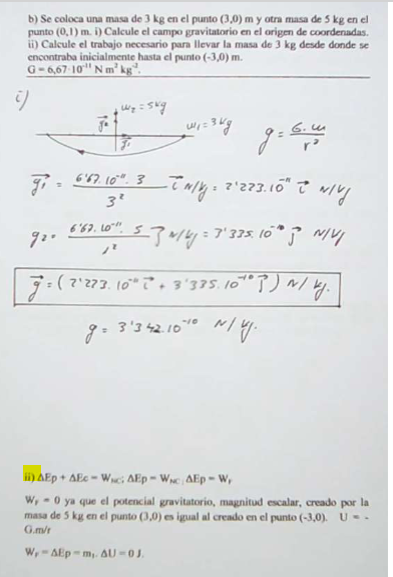 b) Se coloca una masa de 3 kg en el punto (3,0) m y otra masa de 5 kg en el
punto (0,1) m. i) Calcule el campo gravitatorio en el origen de coordenadas.
ii) Calcule el trabajo necesario para llevar la masa de 3 kg desde donde se
encontraba inicialmente hasta el punto (-3,0) m.
G = 6,67·10⁻¹¹ N m² kg⁻².
i)
m₂ = 5 kg
g⃗₂
m₁ = 3 kg
g⃗₁
g = G. m / r²
g⃗₁ = 6'67.10⁻¹¹. 3 / 3² i⃗ N/kg = 2'223.10⁻¹¹ i⃗ N/kg
g₂ = 6'67.10⁻¹¹. 5 / 1² j⃗ N/kg = 3'335.10⁻¹⁰ j⃗ N/kg
g⃗ = (2'223.10⁻¹¹ i⃗ + 3'335.10⁻¹⁰ j⃗) N/kg.
g = 3'342.10⁻¹⁰ N/kg.
ii) ΔEp + ΔEc = W_NC; ΔEp = W_NC; ΔEp = W_F
W_F = 0 ya que el potencial gravitatorio, magnitud escalar, creado por la
masa de 5 kg en el punto (3,0) es igual al creado en el punto (-3,0). U = -
G.m/r
W_F = ΔEp = m₁. ΔU = 0 J.